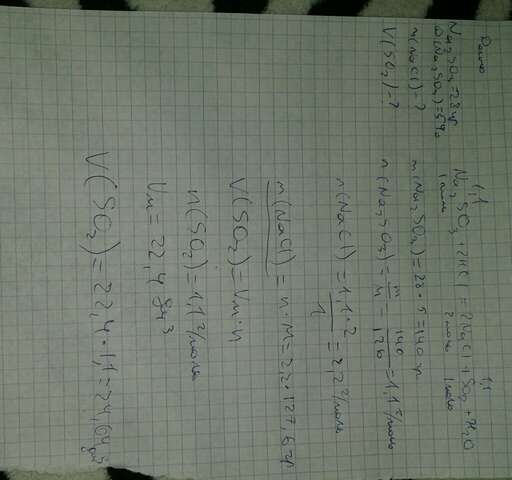 Дано
Na₂SO₃ = 28 г
ω(Na₂SO₃) = 5%
m(NaCl) - ?
V(SO₂) - ?
1,1 1,1
Na₂SO₃ + 2HCl = 2NaCl + SO₂ + H₂O
1 моль 2 моль 1 моль
m(Na₂SO₃) = 28 · 5 = 140 г
n(Na₂SO₃) = m/M = 140/126 = 1,1 г/моль
n(NaCl) = 1,1 · 2/1 = 2,2 г/моль
m(NaCl) = n · M = 2,2 · 127,6 г
V(SO₂) = Vm · n
n(SO₂) = 1,1 г/моль
Vm = 22,4 дм³
V(SO₂) = 22,4 · 1,1 = 24,64 дм³